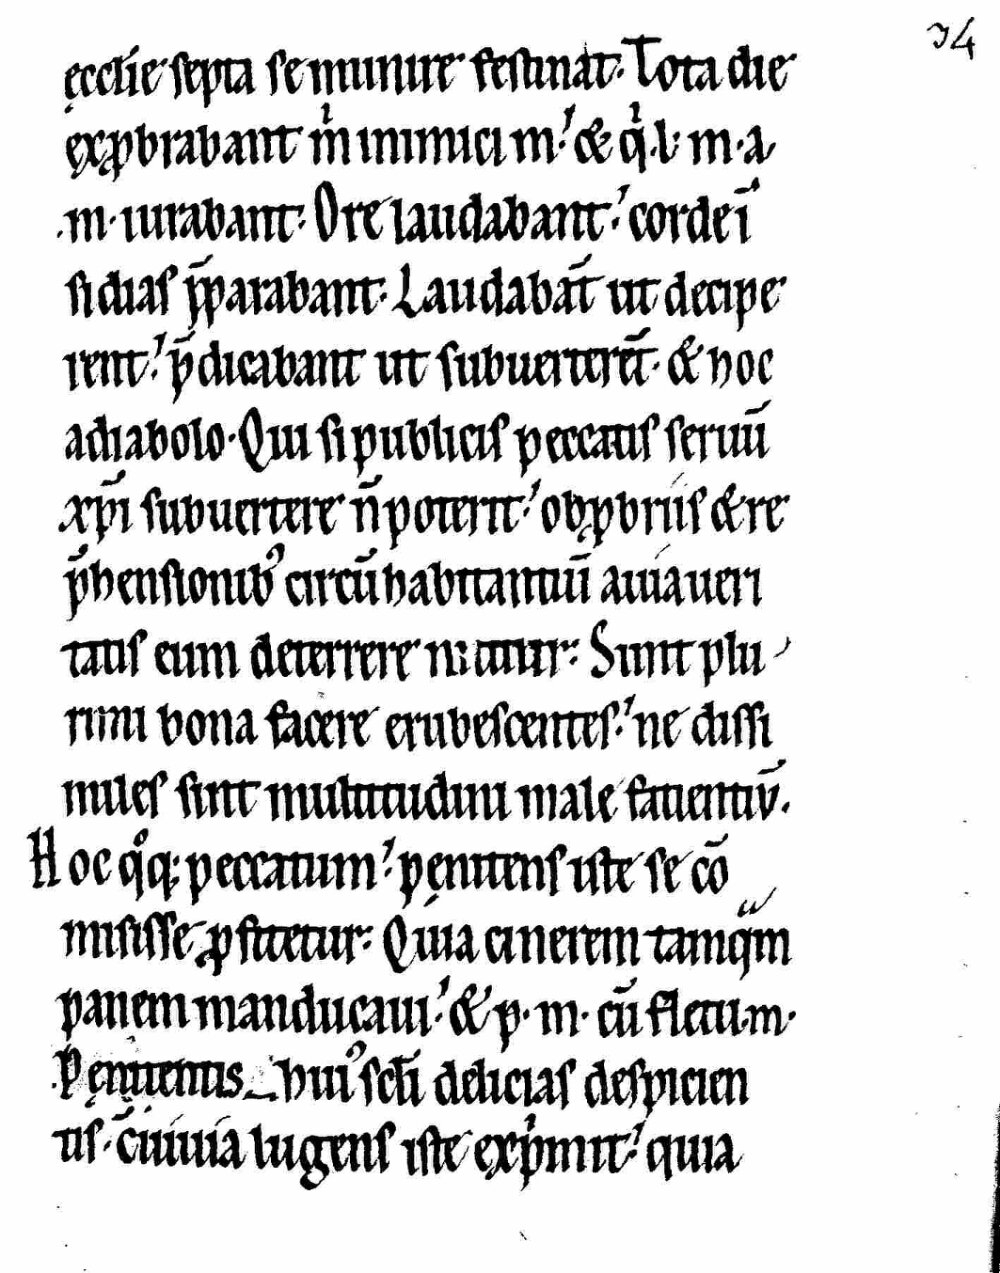 34
ęcclīe septa se munire festinat. Tota die
exꝓbrabant m̍ inimici m.᾽ & q̍. l. m. a.
.m. iurabant. Ore laudabant.᾽ corde ī
sidias p̄parabant. Laudabāt ut decipe
rent.᾽ p̄dicabant ut subuerterēt. & hoc
adiabolo. Qui si publicis peccatis seruū
xp̄i subuertere n̄ poterit.᾽ obꝓbriis & re
p̄hensionib᾽ circū habitantiū auia ueri
tatis eum deterrere nititur. Sunt plu
rimi bona facere erubescentes.᾽ ne dissi
miles sint multitudini male fauentiū.
Hoc qͦq; peccatum.᾽ penitens iste se cō
misisse ꝓfitetur. Quia cinerem tamqͣm
panem manducaui.᾽ & p. m. cū fletu. m.
.Pęnitentis hui᾽ sc̄li delicias despicien
tis. c̄uiuia lugens iste exp̍mit.᾽ quia